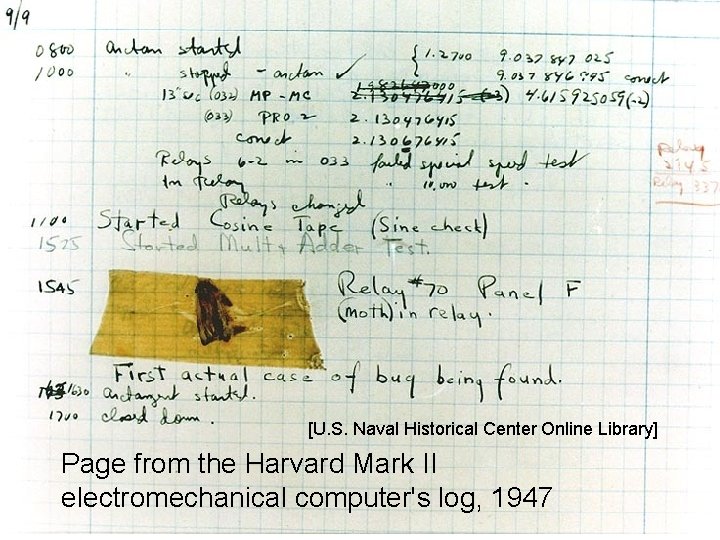 9/9
0800 arctan started { 1.2700 9.037 847 025
1000 " stopped - arctan ✓ { 9.037 846 995 correct
13"sec (032) MP - MC 2.130476415 (-3) 4.615925059(-2)
(033) PRO 2 2.130476415
correct 2.130676415
Relays 6-2 in 033 failed special speed test
In Relay " 10,000 test .
Relay
2145
Relay 337
Relays changed
1100 Started Cosine Tape (Sine check)
1525 Started Mult + Adder Test.
1545 Relay #70 Panel F
(moth) in relay.
First actual case of bug being found.
1630 arctangent started.
1700 closed down.
[U.S. Naval Historical Center Online Library]
Page from the Harvard Mark II
electromechanical computer's log, 1947